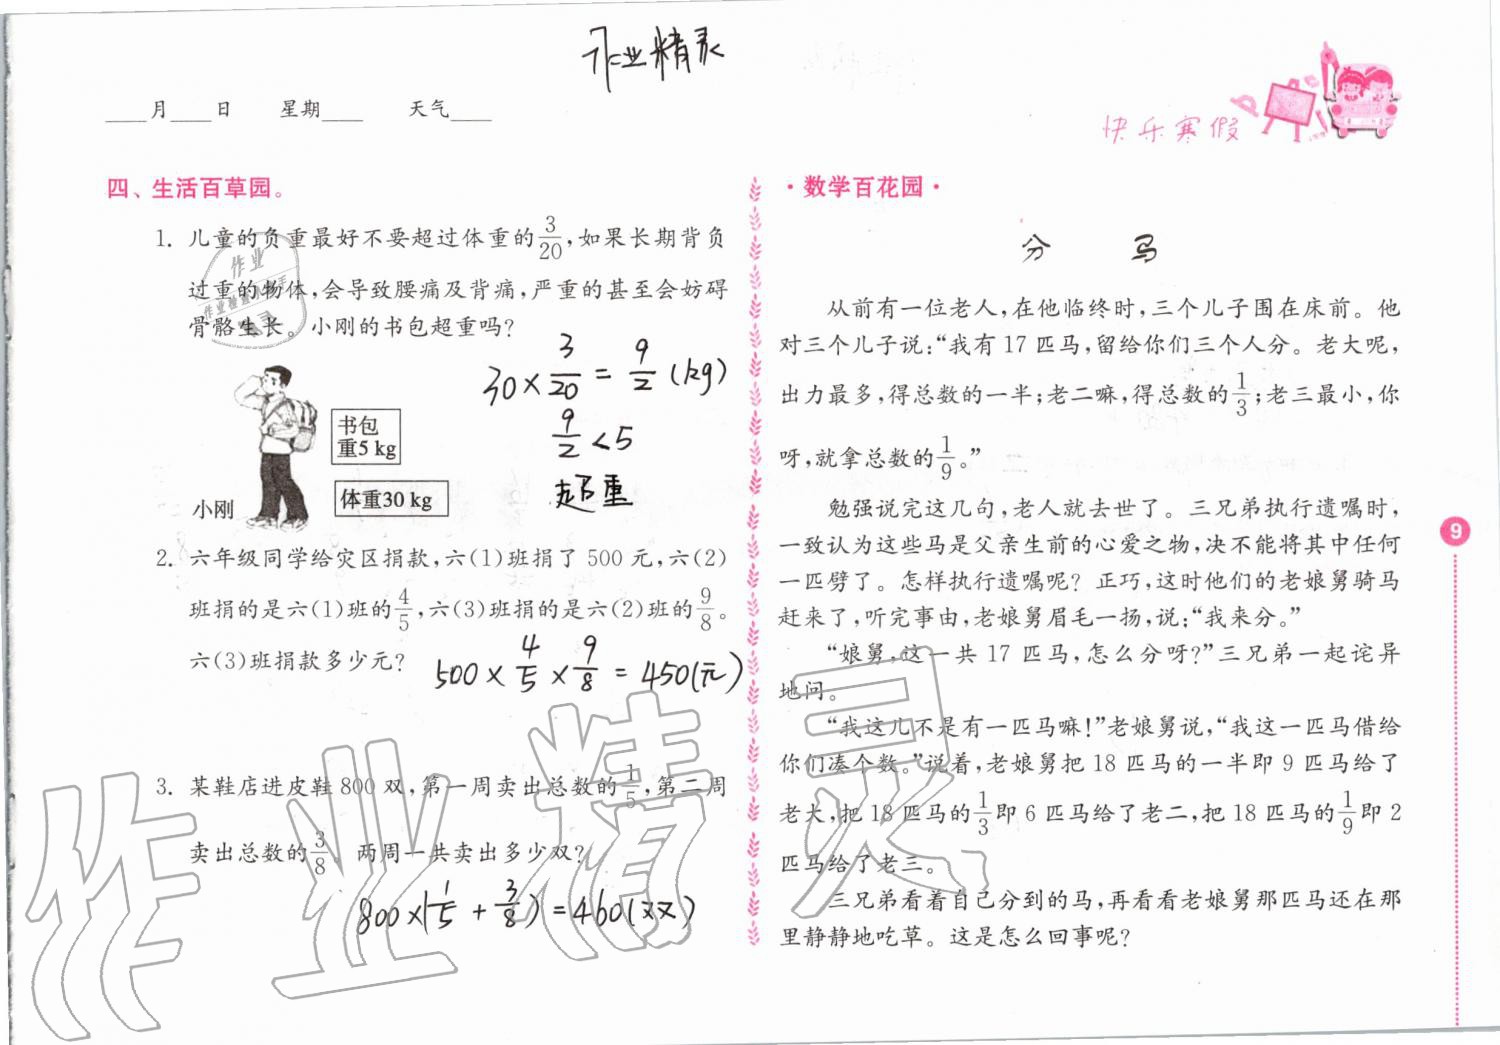 作业精灵
____月____日 星期____ 天气____
快乐寒假
四、生活百草园。
1. 儿童的负重最好不要超过体重的3/20,如果长期背负
过重的物体,会导致腰痛及背痛,严重的甚至会妨碍
骨骼生长。小刚的书包超重吗?
30×3/20=9/2(kg)
9/2<5
超重
书包
重5 kg
体重30 kg
小刚
2. 六年级同学给灾区捐款,六(1)班捐了 500 元,六(2)
班捐的是六(1)班的4/5,六(3)班捐的是六(2)班的9/8。
六(3)班捐款多少元?
500×4/5×9/8=450(元)
3. 某鞋店进皮鞋 800 双,第一周卖出总数的1/5,第二周
卖出总数的3/8。两周一共卖出多少双?
800×(1/5+3/8)=460(双)
·数学百花园·
分 马
从前有一位老人,在他临终时,三个儿子围在床前。他
对三个儿子说:“我有 17 匹马,留给你们三个人分。老大呢,
出力最多,得总数的一半;老二嘛,得总数的1/3;老三最小,你
呀,就拿总数的1/9。”
勉强说完这几句,老人就去世了。三兄弟执行遗嘱时,
一致认为这些马是父亲生前的心爱之物,决不能将其中任何
一匹劈了。怎样执行遗嘱呢? 正巧,这时他们的老娘舅骑马
赶来了,听完事由,老娘舅眉毛一扬,说:“我来分。”
“娘舅,这一共 17 匹马,怎么分呀?”三兄弟一起诧异
地问。
“我这儿不是有一匹马嘛!”老娘舅说,“我这一匹马借给
你们凑个数。”说着,老娘舅把 18 匹马的一半即 9 匹马给了
老大,把 18 匹马的1/3即 6 匹马给了老二,把 18 匹马的1/9即 2
匹马给了老三。
三兄弟看着自己分到的马,再看看老娘舅那匹马还在那
里静静地吃草。这是怎么回事呢?
9
作业精灵